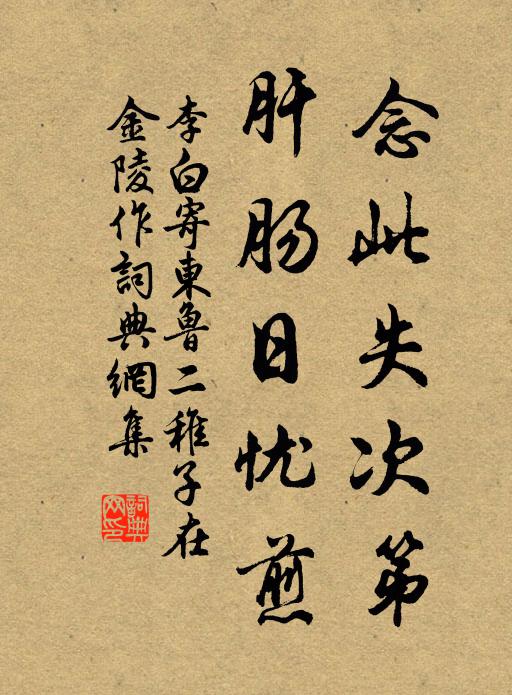 念此失次第
肝肠日忧煎
李白寄東魯二稚子在
金陵作詞典網集
詞典網印